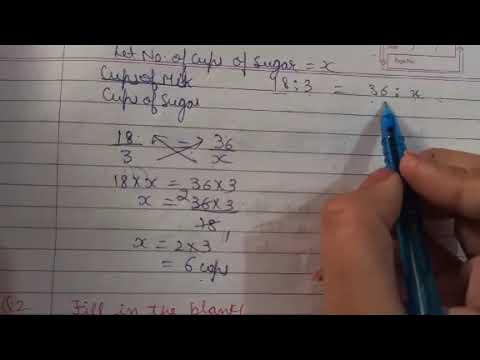 Let No. of Cups of Sugar = x
Cups of Milk
Cups of Sugar
18 : 3 = 36 : x
18/3 = 36/x
18 × x = 36 × 3
x = 2 36 × 3
18 1
x = 2 × 3
= 6 cups
Q2 Fill in the blanks